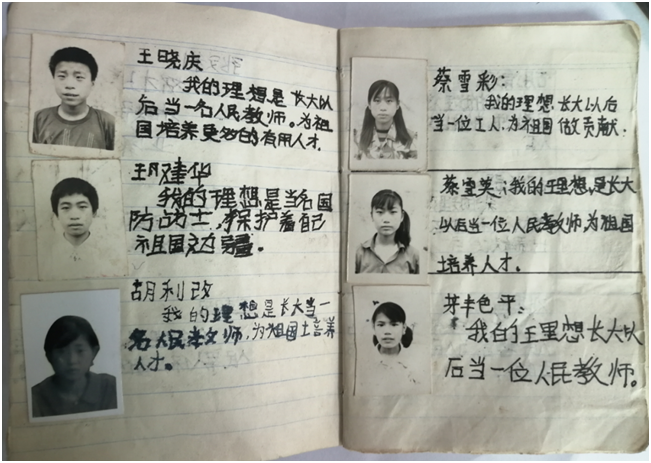 王晓庆
我的理想是长大以
后当一名人民教师。为祖
国培养更多的有用人才.
建华
我的理想是当名国
防战士,保护着自己
祖国边疆。
胡利改
我的理想是长大当一
名人民教师,为祖国土培养
人才。
蔡雪彩:
我的理想长大以后
当一位工人,为祖国做贡献.
蔡雪英:我的理想,是长大
以后当一位人民教师,为祖国
培养人才。
色平:
我的理想长大以
后当一位人民教师。